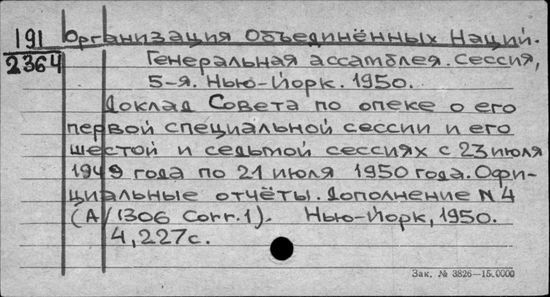 191
2364
Организация Объединённых Наций.
Генеральная ассамблея. Сессия,
5-я. Нью-Йорк. 1950.
Доклад Совета по опеке о его
первой специальной сессии и его
шестой и седьмой сессиях с 23 июля
1949 года по 21 июля 1950 года. Офи-
циальные отчёты. Дополнение N 4
(A/1306 Corr. 1). Нью-Йорк, 1950.
4, 227с.
Зак. № 3826—15.0000